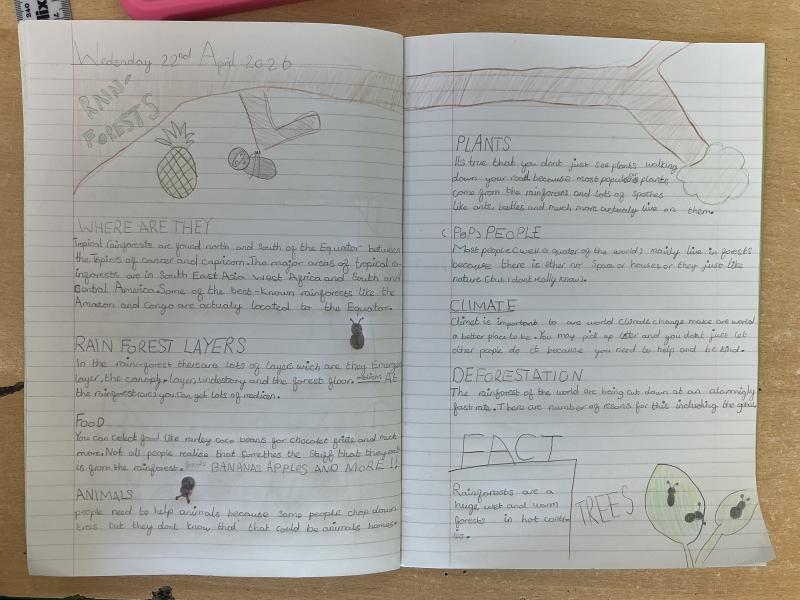 Wednesday 22nd April 2026
RAIN-
FORESTS
WHERE ARE THEY
Tropical rainforests are found north and south of the Equator between
the Topics of cancer and capricorn. The major areas of tropical ra-
inforests are in South East Asia west Africa and South and
Central America. Some of the best-known rainforests like the
Amazon and Congo are actualy located to the Equator.
RAIN FOREST LAYERS
In the rainforest there are lots of layers wich are they Emergent
layer, the canopy, layer, understory and the forest floor. At
the rainforest you can get lots of medicen.
FOOD
You can collect food like coco beans for chocolet and much
more. Not all people realise that the stuff that they eat
is from the rainforest. BANANAS APPLES AND MORE !!
ANIMALS
people need to help animals because some people chop down
trees but they dont know that that could be animals homes.
PLANTS
Its true that you dont just see plants walking
down your road because most plants
come from the rainforests and lots of speches
like ants, beetles and much more actually live on them.
POPS PEOPLE
Most people (well a quater of the world) mainly live in forests
because there is ether no space or houses or they just like
nature (but I dont really know).
CLIMATE
Climet is important to are world climate change make are world
a better place to be. You may pick up liter and you dont just let
other people do it because you need to help and be kind.
DEFORESTATION
The rainforest of the world are being cut down at an alarmingly
fast rate. There are number of resons for this including the global
FACT
Rainforests are a
huge wet and warm
forests in hot contr-
ies.
TREES